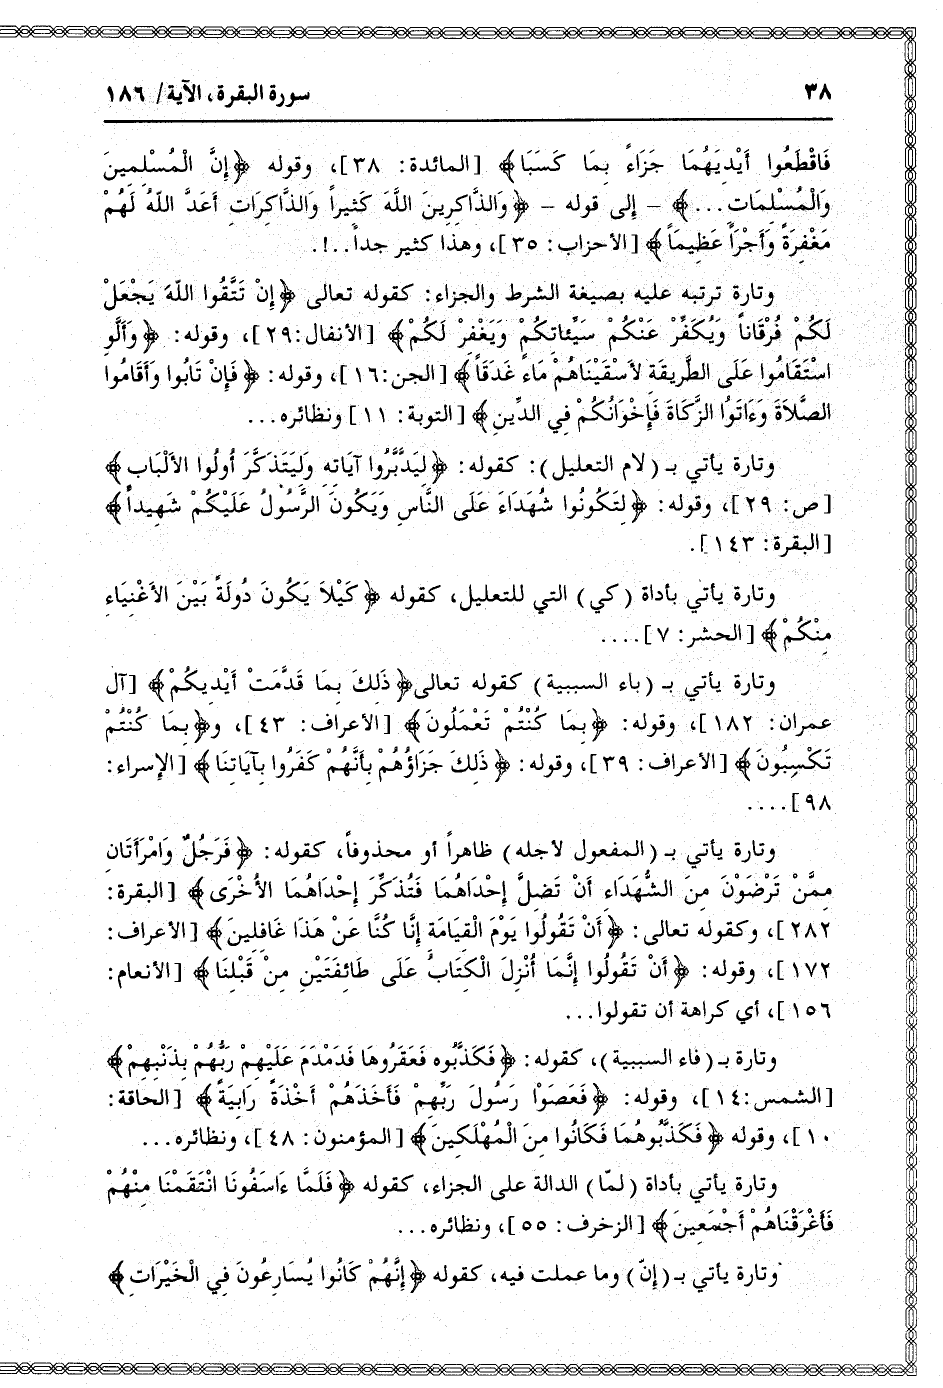 ٣٨ سورة البقرة، الآية/ ١٨٦
فَاقْطَعُوا أَيْدِيَهُمَا جَزَاءً بِمَا كَسَبَا﴾ [المائدة: ٣٨]، وقوله ﴿إِنَّ الْمُسْلِمِينَ
وَالْمُسْلِمَاتِ...﴾ – إلى قوله – ﴿وَالذَّاكِرِينَ اللَّهَ كَثِيراً وَالذَّاكِرَاتِ أَعَدَّ اللَّهُ لَهُمْ
مَغْفِرَةً وَأَجْراً عَظِيماً﴾ [الأحزاب: ٣٥]، وهذا كثير جداً..!.
وتارة ترتبه عليه بصيغة الشرط والجزاء: كقوله تعالى ﴿إِنْ تَتَّقُوا اللَّهَ يَجْعَلْ
لَكُمْ فُرْقَاناً وَيُكَفِّرْ عَنْكُمْ سَيِّئَاتِكُمْ وَيَغْفِرْ لَكُمْ﴾ [الأنفال:٢٩]، وقوله: ﴿وَأَلَّوِ
اسْتَقَامُوا عَلَى الطَّرِيقَةِ لأَسْقَيْنَاهُمْ مَاءً غَدَقَاً﴾ [الجن:١٦]، وقوله: ﴿فَإِنْ تَابُوا وَأَقَامُوا
الصَّلاَةَ وَءَاتَوُا الزَّكَاةَ فَإِخْوَانُكُمْ فِي الدِّينِ﴾ [التوبة: ١١] ونظائره...
وتارة يأتي بـ (لام التعليل): كقوله: ﴿لِيَدَّبَّرُوا آيَاتِهِ وَلِيَتَذَكَّرَ أُولُوا الأَلْبَابِ﴾
[ص: ٢٩]، وقوله: ﴿لِتَكُونُوا شُهَدَاءَ عَلَى النَّاسِ وَيَكُونَ الرَّسُولُ عَلَيْكُمْ شَهِيداً﴾
[البقرة: ١٤٣].
وتارة يأتي بأداة (كي) التي للتعليل، كقوله ﴿كَيْلاَ يَكُونَ دُولَةً بَيْنَ الأَغْنِيَاءِ
مِنْكُمْ﴾ [الحشر: ٧]....
وتارة يأتي بـ (باء السببية) كقوله تعالى﴿ذَلِكَ بِمَا قَدَّمَتْ أَيْدِيكُمْ﴾ [آل
عمران: ١٨٢]، وقوله: ﴿بِمَا كُنْتُمْ تَعْمَلُونَ﴾ [الأعراف: ٤٣]، و﴿بِمَا كُنْتُمْ
تَكْسِبُونَ﴾ [الأعراف: ٣٩]، وقوله: ﴿ذَلِكَ جَزَاؤُهُمْ بِأَنَّهُمْ كَفَرُوا بِآيَاتِنَا﴾ [الإسراء:
٩٨]....
وتارة يأتي بـ (المفعول لأجله) ظاهراً أو محذوفاً، كقوله: ﴿فَرَجُلٌ وَامْرَأَتَانِ
مِمَّنْ تَرْضَوْنَ مِنَ الشُّهَدَاءِ أَنْ تَضِلَّ إِحْدَاهُمَا فَتُذَكِّرَ إِحْدَاهُمَا الأُخْرَى﴾ [البقرة:
٢٨٢]، وكقوله تعالى: ﴿أَنْ تَقُولُوا يَوْمَ الْقِيَامَةِ إِنَّا كُنَّا عَنْ هَذَا غَافِلِينَ﴾ [الأعراف:
١٧٢]، وقوله: ﴿أَنْ تَقُولُوا إِنَّمَا أُنْزِلَ الْكِتَابُ عَلَى طَائِفَتَيْنِ مِنْ قَبْلِنَا﴾ [الأنعام:
١٥٦]، أي كراهة أن تقولوا...
وتارة بـ (فاء السببية)، كقوله: ﴿فَكَذَّبُوه فَعَقَرُوهَا فَدَمْدَمَ عَلَيْهِمْ رَبُّهُمْ بِذَنْبِهِمْ﴾
[الشمس:١٤]، وقوله: ﴿فَعَصَوْا رَسُولَ رَبِّهِمْ فَأَخَذَهُمْ أَخْذَةً رَابِيَةً﴾ [الحاقة:
١٠]، وقوله ﴿فَكَذَّبُوهُمَا فَكَانُوا مِنَ الْمُهْلَكِينَ﴾ [المؤمنون: ٤٨]، ونظائره...
وتارة يأتي بأداة (لمّا) الدالة على الجزاء، كقوله ﴿فَلَمَّا ءَاسَفُونَا انْتَقَمْنَا مِنْهُمْ
فَأَغْرَقْنَاهُمْ أَجْمَعِينَ﴾ [الزخرف: ٥٥]، ونظائره...
وتارة يأتي بـ (إنّ) وما عملت فيه، كقوله ﴿إِنَّهُمْ كَانُوا يُسَارِعُونَ فِي الْخَيْرَاتِ﴾